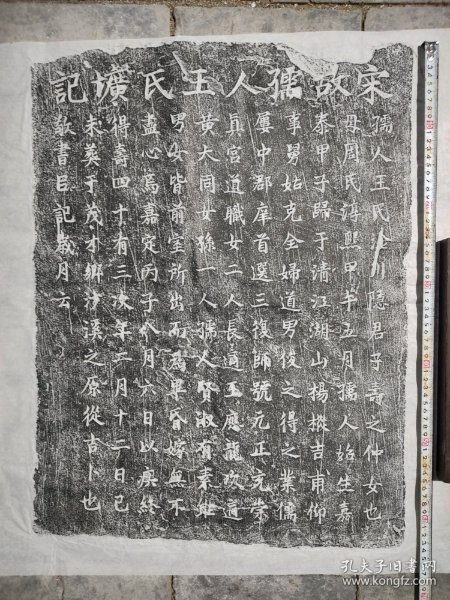 宋故孺人王氏壙記
孺人王氏金川隱君子壽之仲女也
母周氏淳熙甲午五月孺人始生嘉
泰甲子歸于清江湖山楊樅吉甫仰
事舅姑克全婦道男復之得之業儒
屢中郡庠首選三復師號元正充崇
真宮道職女二人長適王應龍次適
黃大同女孫一人孺人賢淑有素雖
男女皆前室所出而為畢昏嫁無不
盡心焉嘉定丙子八月六日以疾終
得壽四十有三次年二月十二日己
未葬于茂才鄉汴溪之原從吉卜也
敬書且記歲月云
孔夫子旧书网
www.kongfz.com